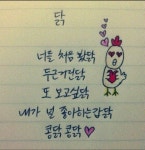 닭
너를 처음 봤닭
두근거런닭
또 보고싶닭
내가 널 좋아하는갑닭
콩닭 콩닭